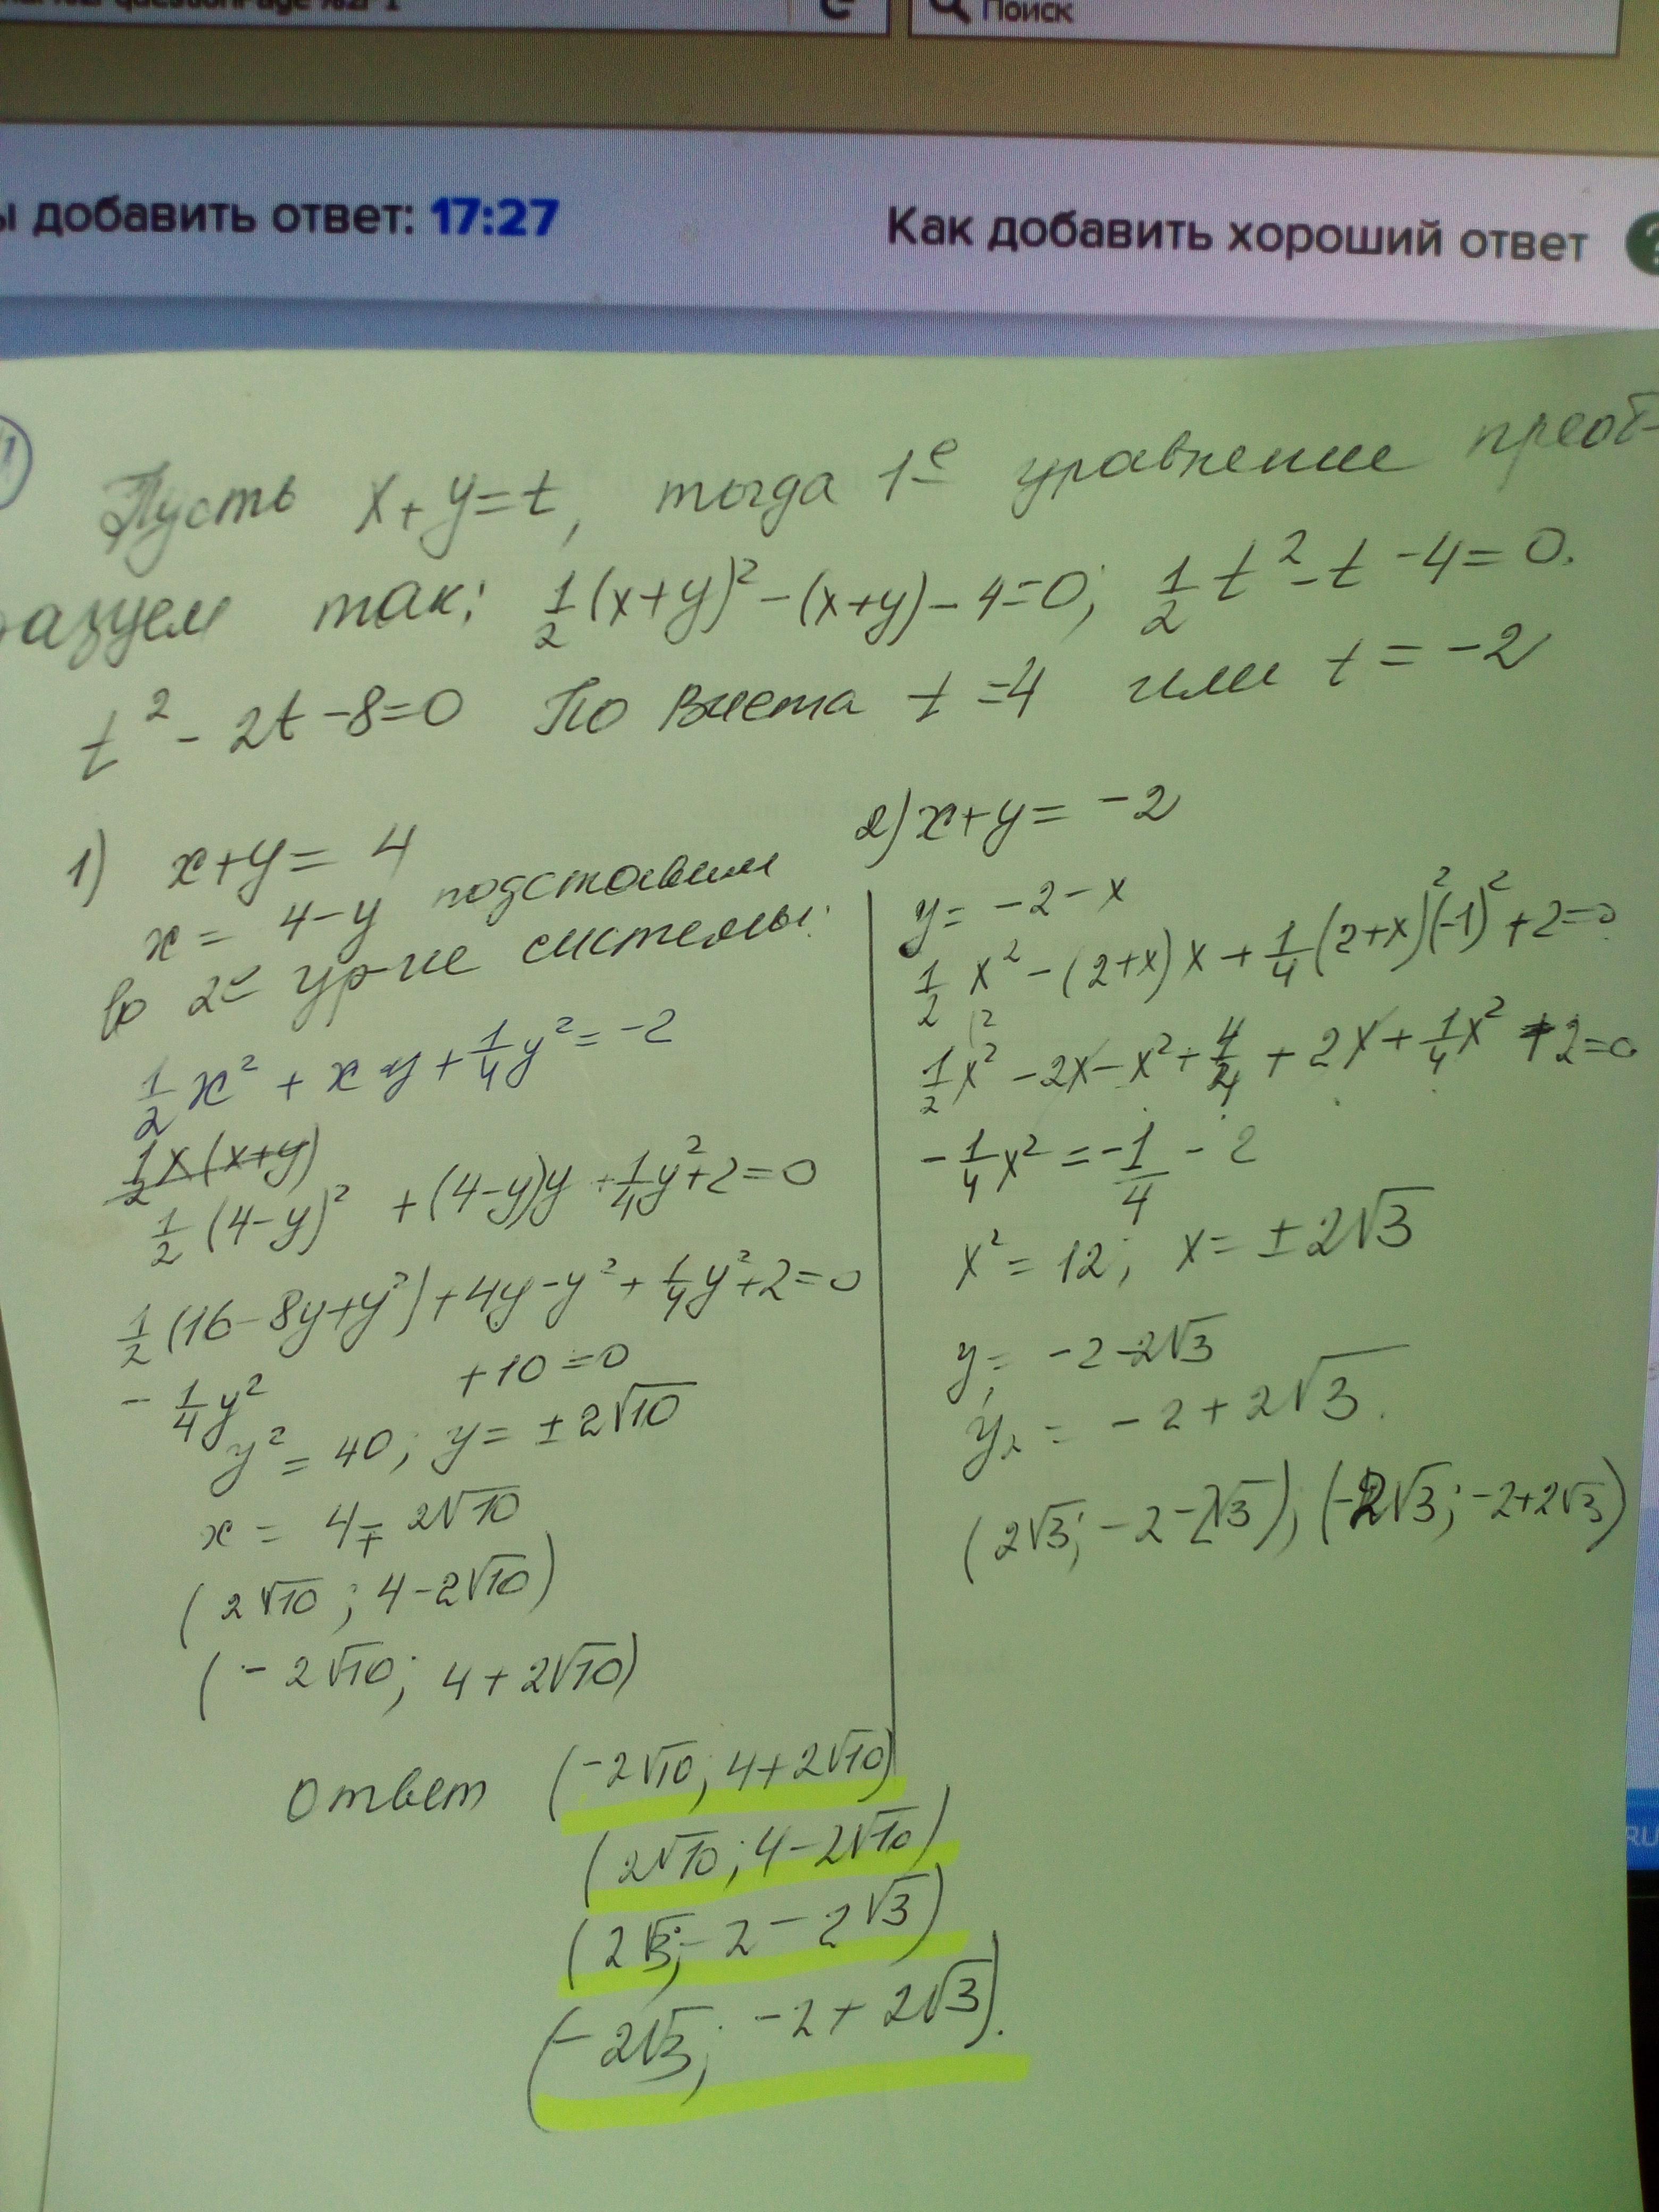 Поиск
добавить ответ: 17:27
Как добавить хороший ответ ?
Пусть x+y=t, тогда 1е уравнение преоб-
разуем так: 1/2(x+y)²-(x+y)-4=0; 1/2t²-t-4=0.
t²-2t-8=0 По Виета t=4 или t=-2
1) x+y=4
x=4-y подставим
во 2е ур-ие системы:
1/2x²+xy+1/4y²=-2
1/2x(x+y)
1/2(4-y)²+(4-y)y+1/4y²+2=0
1/2(16-8y+y²)+4y-y²+1/4y²+2=0
-1/4y² +10=0
y²=40; y=±2√10
x=4∓2√10
(2√10; 4-2√10)
(-2√10; 4+2√10)
2) x+y=-2
y=-2-x
1/2x²-(2+x)x+1/4(2+x)²(-1)²+2=0
1/2x²-2x-x²+4/4+2x+1/4x²+2=0
-1/4x²=-1/4-2
x²=12; x=±2√3
y₁=-2-2√3
y₂=-2+2√3.
(2√3; -2-2√3); (-2√3; -2+2√3)
Ответ (-2√10; 4+2√10)
(2√10; 4-2√10)
(2√3; -2-2√3)
(-2√3; -2+2√3).
RU